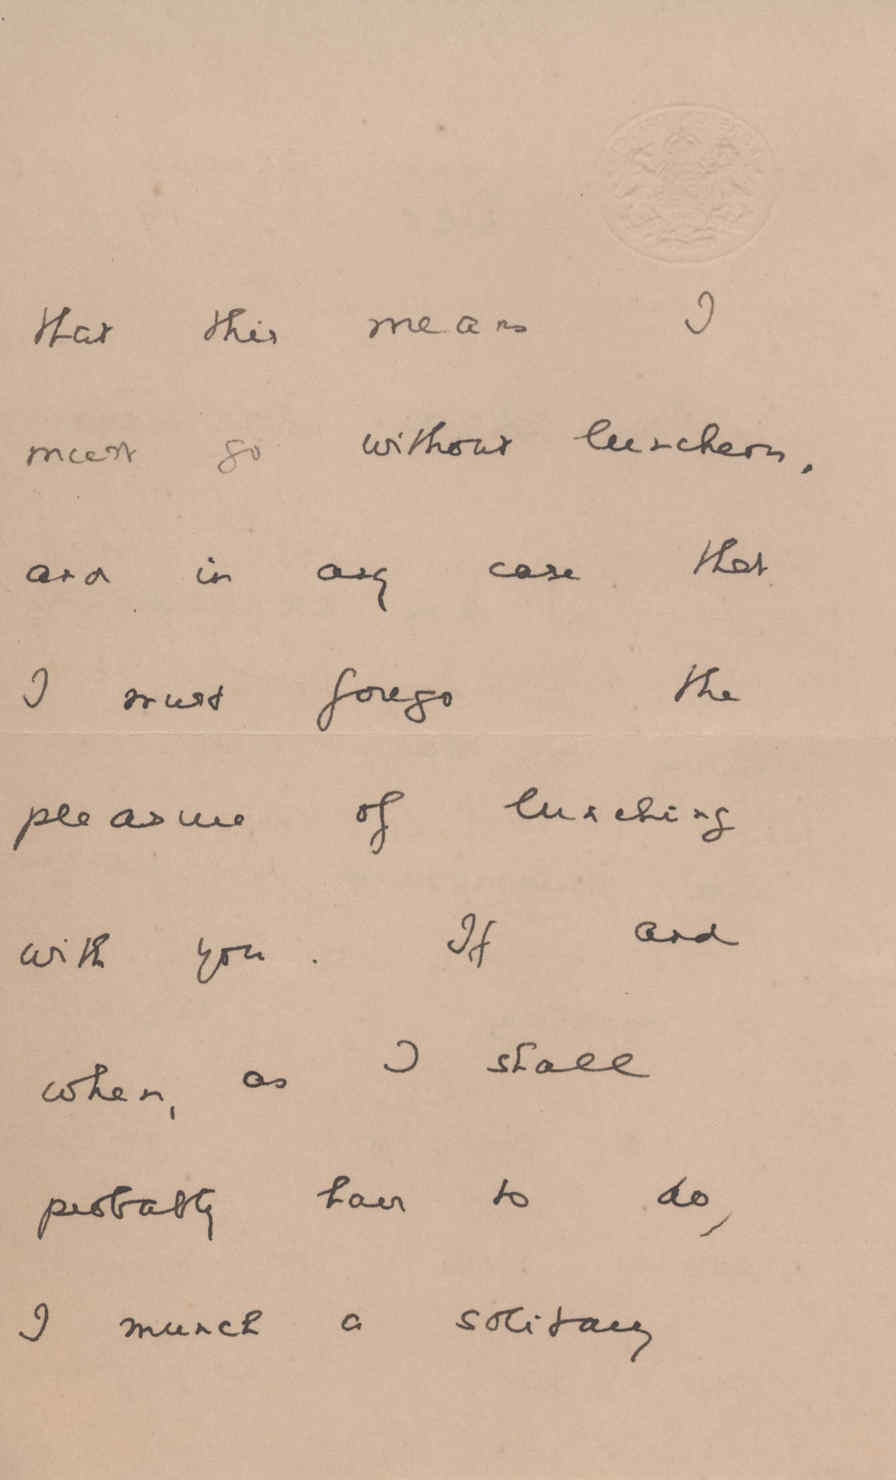 that this means I
must go without luncheon,
and in any case that
I must forego the
pleasure of lunching
with you. If and
when, as I shall
probably have to do,
I munch a solitary